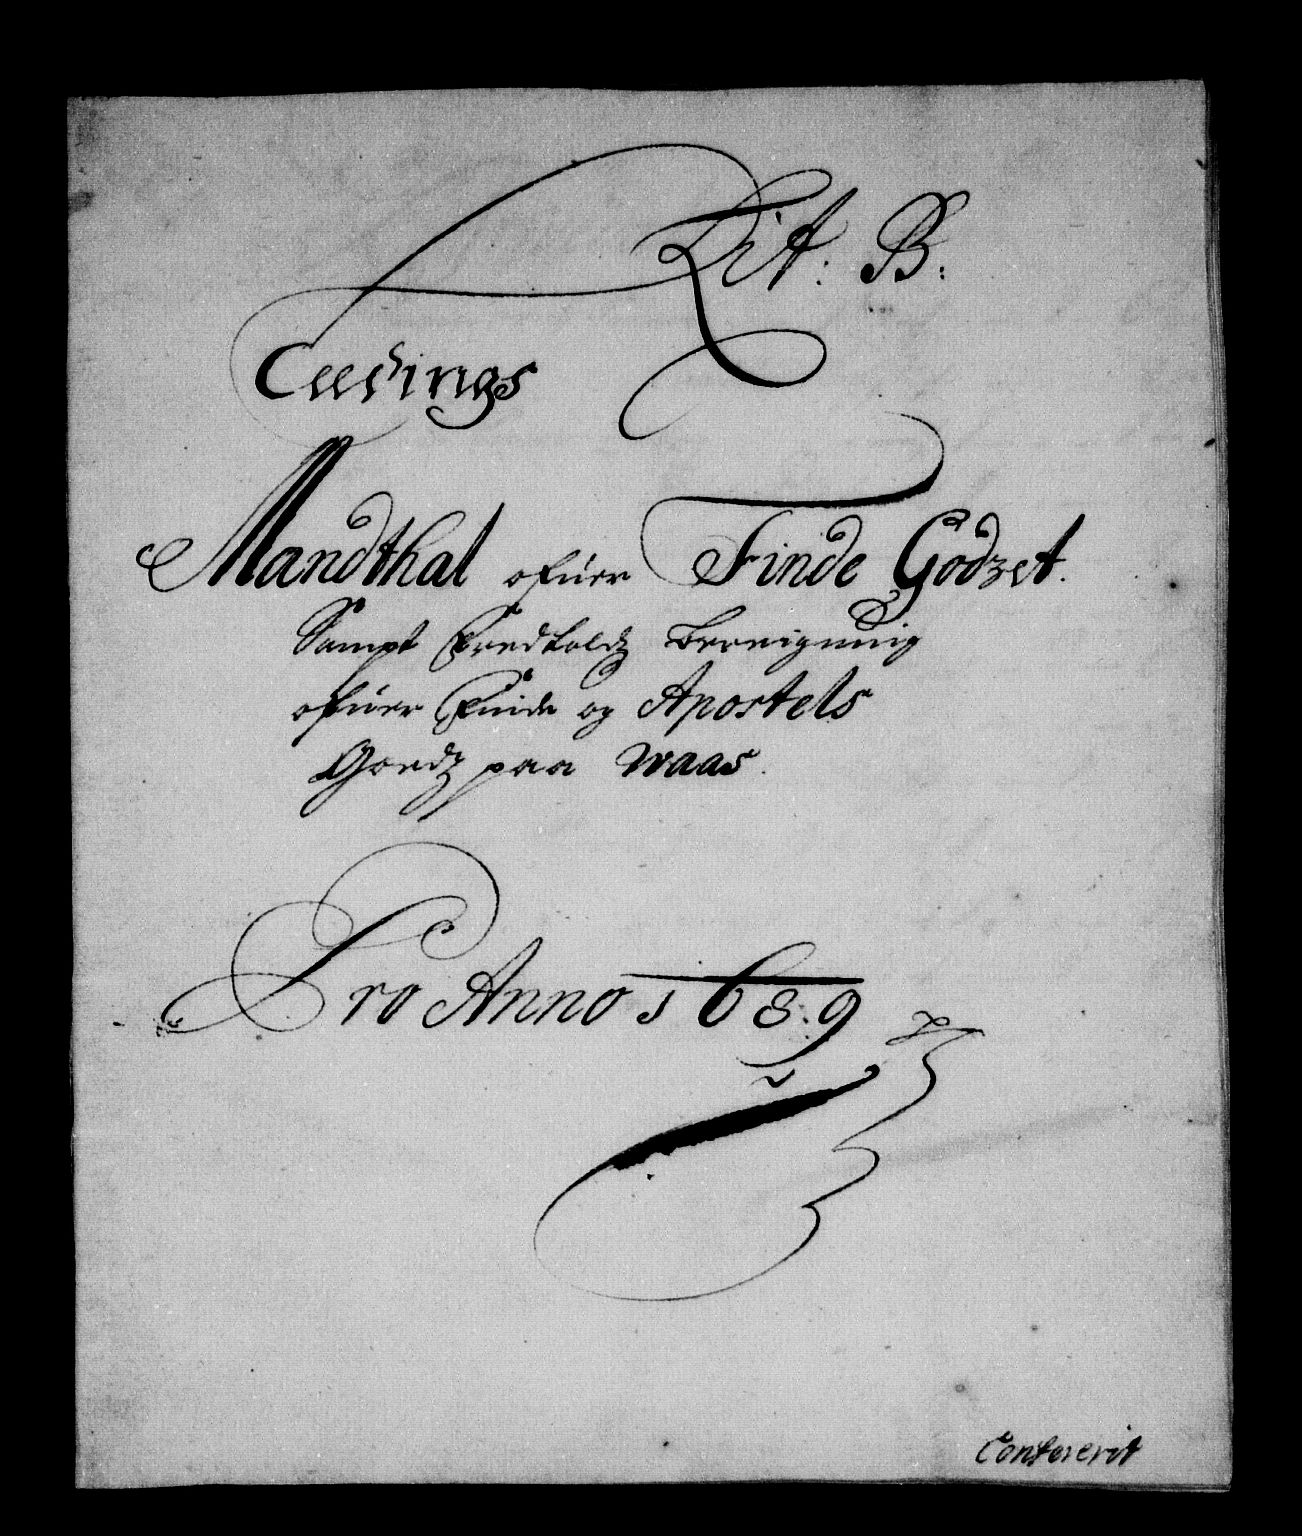 Lit: B:
Leedings
Mandthal ofuer Finde Godzet.
Sampt Fredtolds bereigning
ofuer Finde og Apostels
Goedz paa Waas.
Pro Anno 1689
Confererit